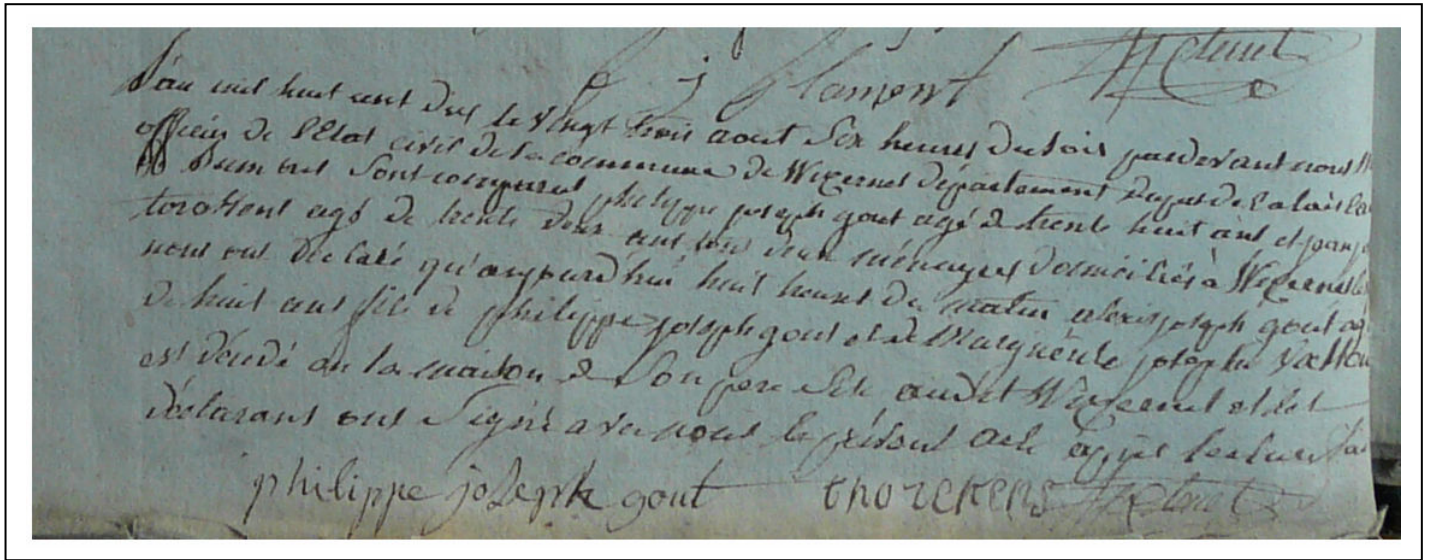 p j flament
L'an mil huit cent dix le vingt trois aout six heures du soir pardevant nous
officier de l'Etat civil de la commune de Wizernes departement du pas de Calais
sont comparut philippe joseph gout agé de trente huit ans et jean
agé de trente deux ans tous deux ménagers domiciliés à Wizernes
nous ont declaré qu'aujourd'hui huit heures du matin alexis joseph gout agé
de huit ans fils de philippe joseph gout et de Marguerite josephe
est décédé en la maison de son pere site audit Wizernes et les
déclarans ont signé avec nous le présent acte après lecture
philippe joseph gout thorekens